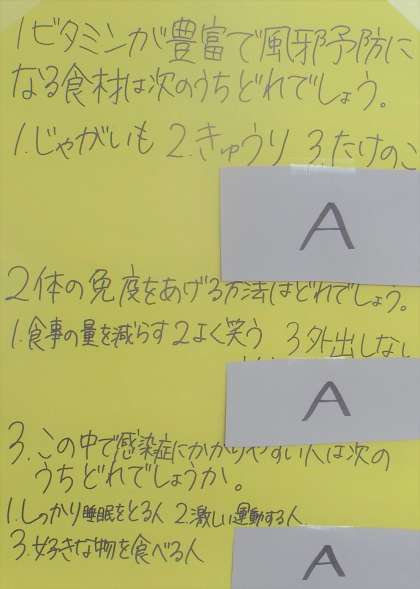 1ビタミンが豊富で風邪予防に
なる食材は次のうちどれでしょう。
1.じゃがいも 2.きゅうり 3.たけのこ
A
2体の免疫をあげる方法はどれでしょう。
1.食事の量を減らす 2よく笑う 3外出しない
A
3.この中で感染症にかかりやすい人は次の
うちどれでしょうか。
1.しっかり睡眠をとる人 2.激しい運動する人
3.好きな物を食べる人
A